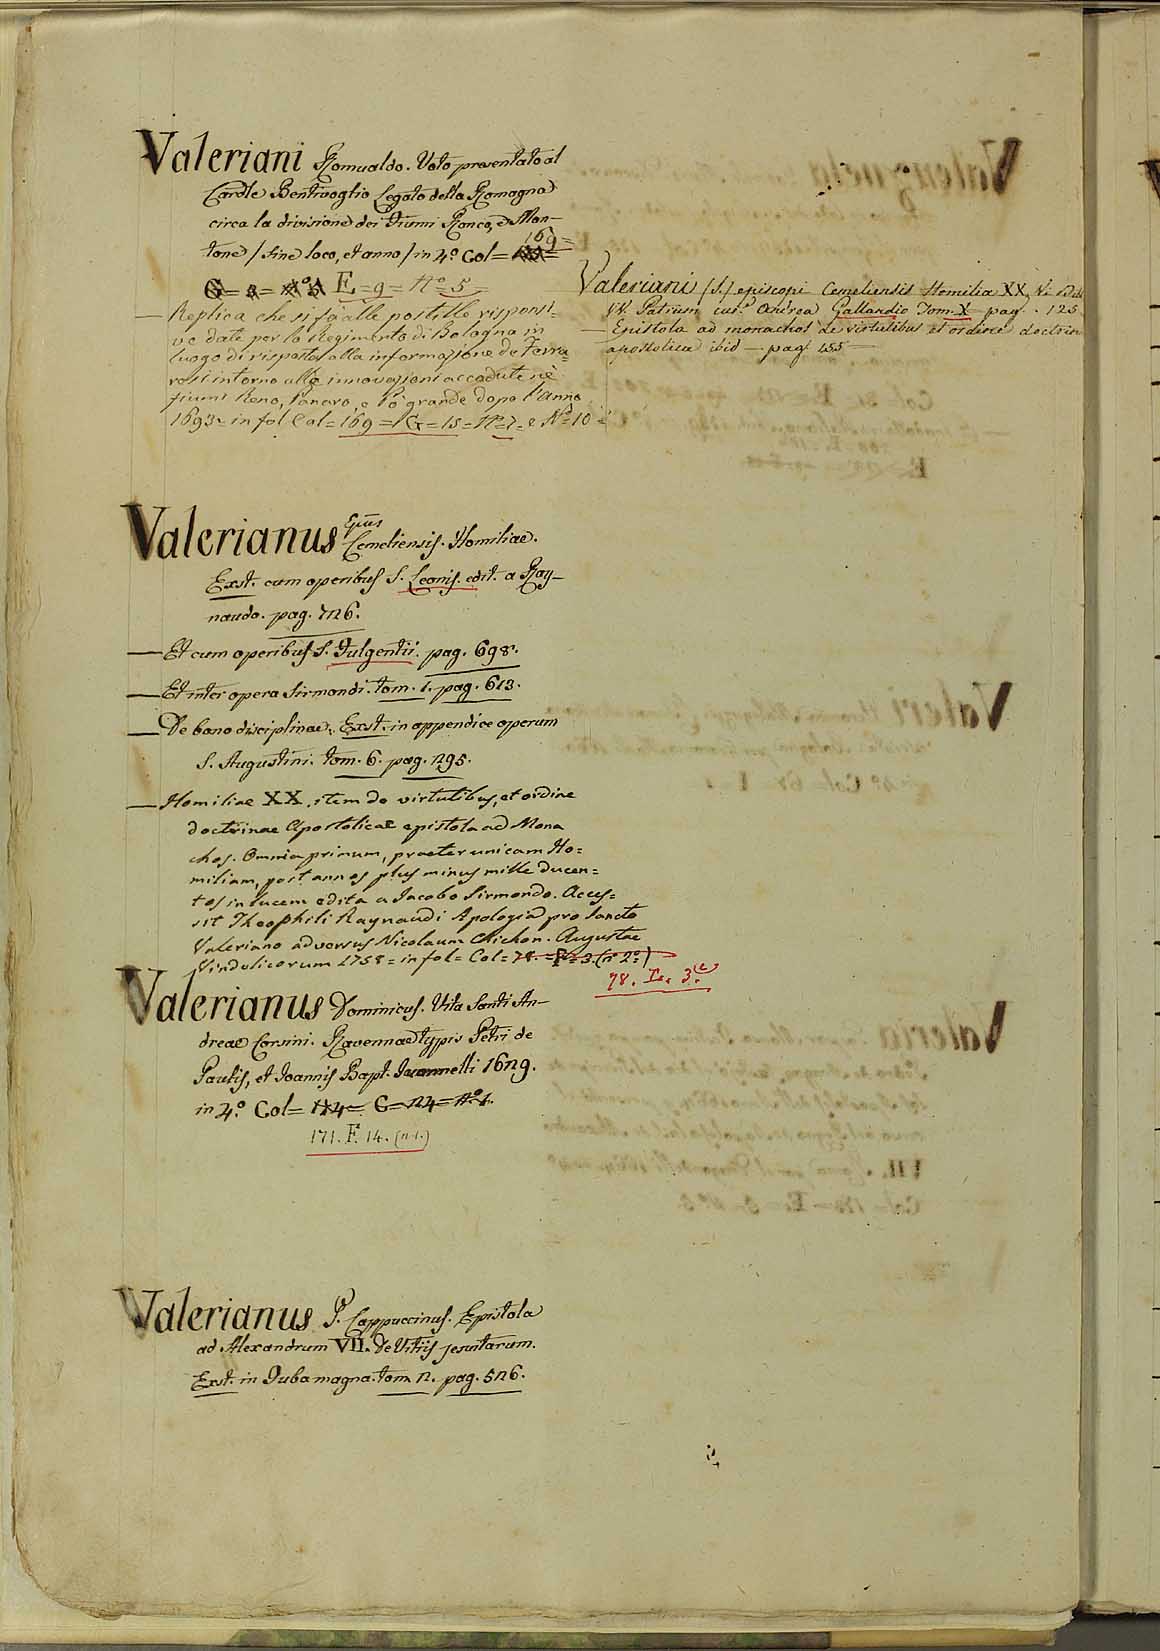 Valeriani Romualdo. Voto presentato al
Cardle Bentivoglio Legato della Romagna
circa la divisione dei fiumi Ronco, e Mon-
tone / sine loco, et anno / in 4.º Col=
169=
E=9= Nº 5
— Replica che si fà alle postille risponsi=
ve date per lo Regimento di Bologna in
luogo di risposta alla informazione de Ferra=
resi intorno alle innovazioni accadute nè
fiumi Reno, Panaro, e Pò grande dopo l'anno
1693= in fol Col=169=G=15=Nº=7= e Nº=10=
Valeriani (S.) episcopi Cemeliensis Homilia XX,
VV. Patrum cur.ª Andrea Gallandio Tom. X pag. 125
— Epistola ad monachos de virtutibus et ordine doctrin
apostolica ibid — pag 155 —
Valerianus Epūs
Cemeliensis. Homiliae.
Exst. cum operibus S. Leonis. edit. a Ray-
naudo. pag. 726.
— Et cum operibus S. Fulgentii. pag. 698.
— Et inter opera Sirmondi. tom. 1. pag. 613.
— De bono disciplinae. Exst. in appendice operum
S. Augustini. tom. 6. pag. 295.
— Homiliae XX, item de virtutibus, et ordine
doctrinae Apostolicae epistola ad Mona
chos. Omnia primum, praeter unicam Ho=
miliam, post annos plus minus mille ducen=
tos in lucem edita a Jacobo Sirmondo. Acces=
sit Theophili Raynaudi Apologia pro Sancto
Valeriano adversus Nicolaum Chichon. Augustae
Vindelicorum 1758= in fol= Col=78.=F=3.(nº 2º=)
78. I. 3.
Valerianus Dominicus. Vita Santi An-
dreae Corsini. Ravennae typis Petri de
Paulis, et Joannis Bapt. Juannelli 1629.
in 4.º Col=124= G=24=Nº1.
171. F. 14. (n.1.)
Valerianus P. Cappuccinus. Epistola
ad Alexandrum VII. De Vitiis jesuitarum.
Exst. in Tuba magna. tom 2. pag. 526.